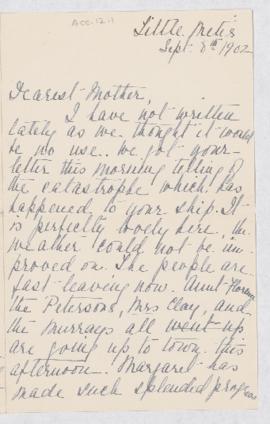 ACC-12-1
Little Metis
Sept. 8th 1902
Dearest Mother,
I have not written
lately as we thought it would
be no use. We got your
letter this morning telling of
the catastrophe which has
happened to your ship. It
is perfectly lovely here, the
weather could not be im-
proved on. The people are
fast leaving now. Aunt Florence
the Petersons, Mrs Clay, and
the Murrays all went up
are going up to town this
afternoon. Margaret has
made such splendid progress